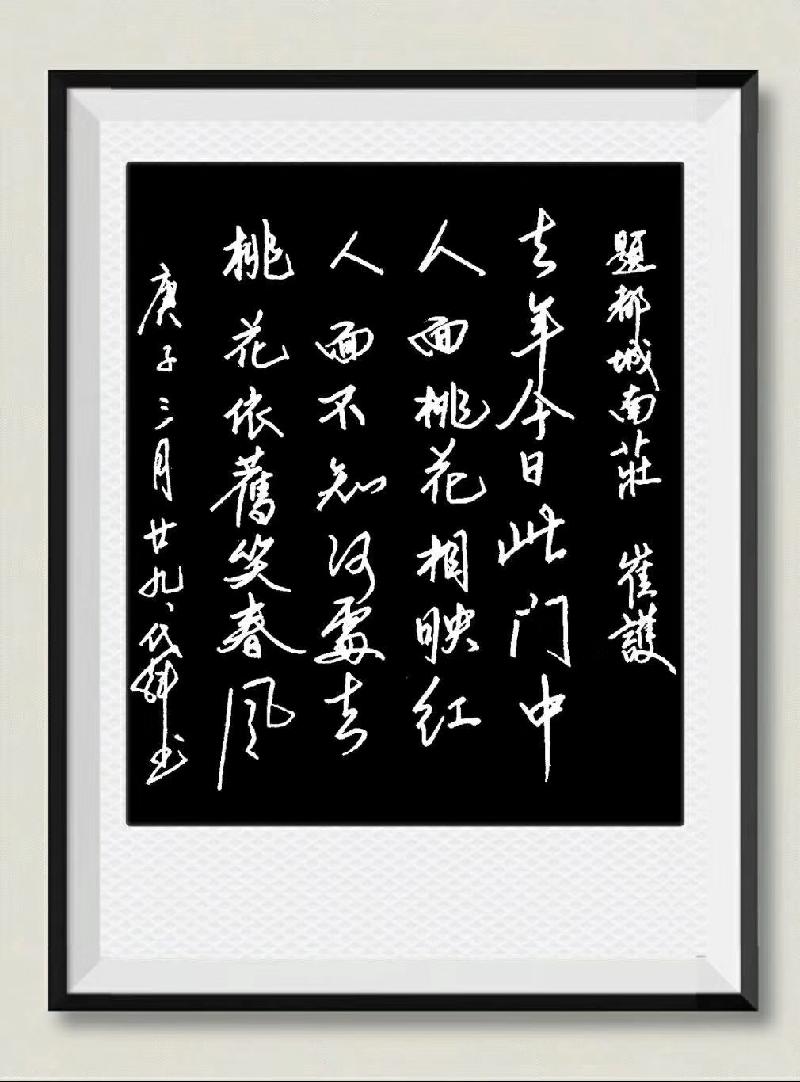 題都城南莊 崔護
去年今日此门中
人面桃花相映红
人面不知何處去
桃花依舊笑春风
庚子三月廿九、